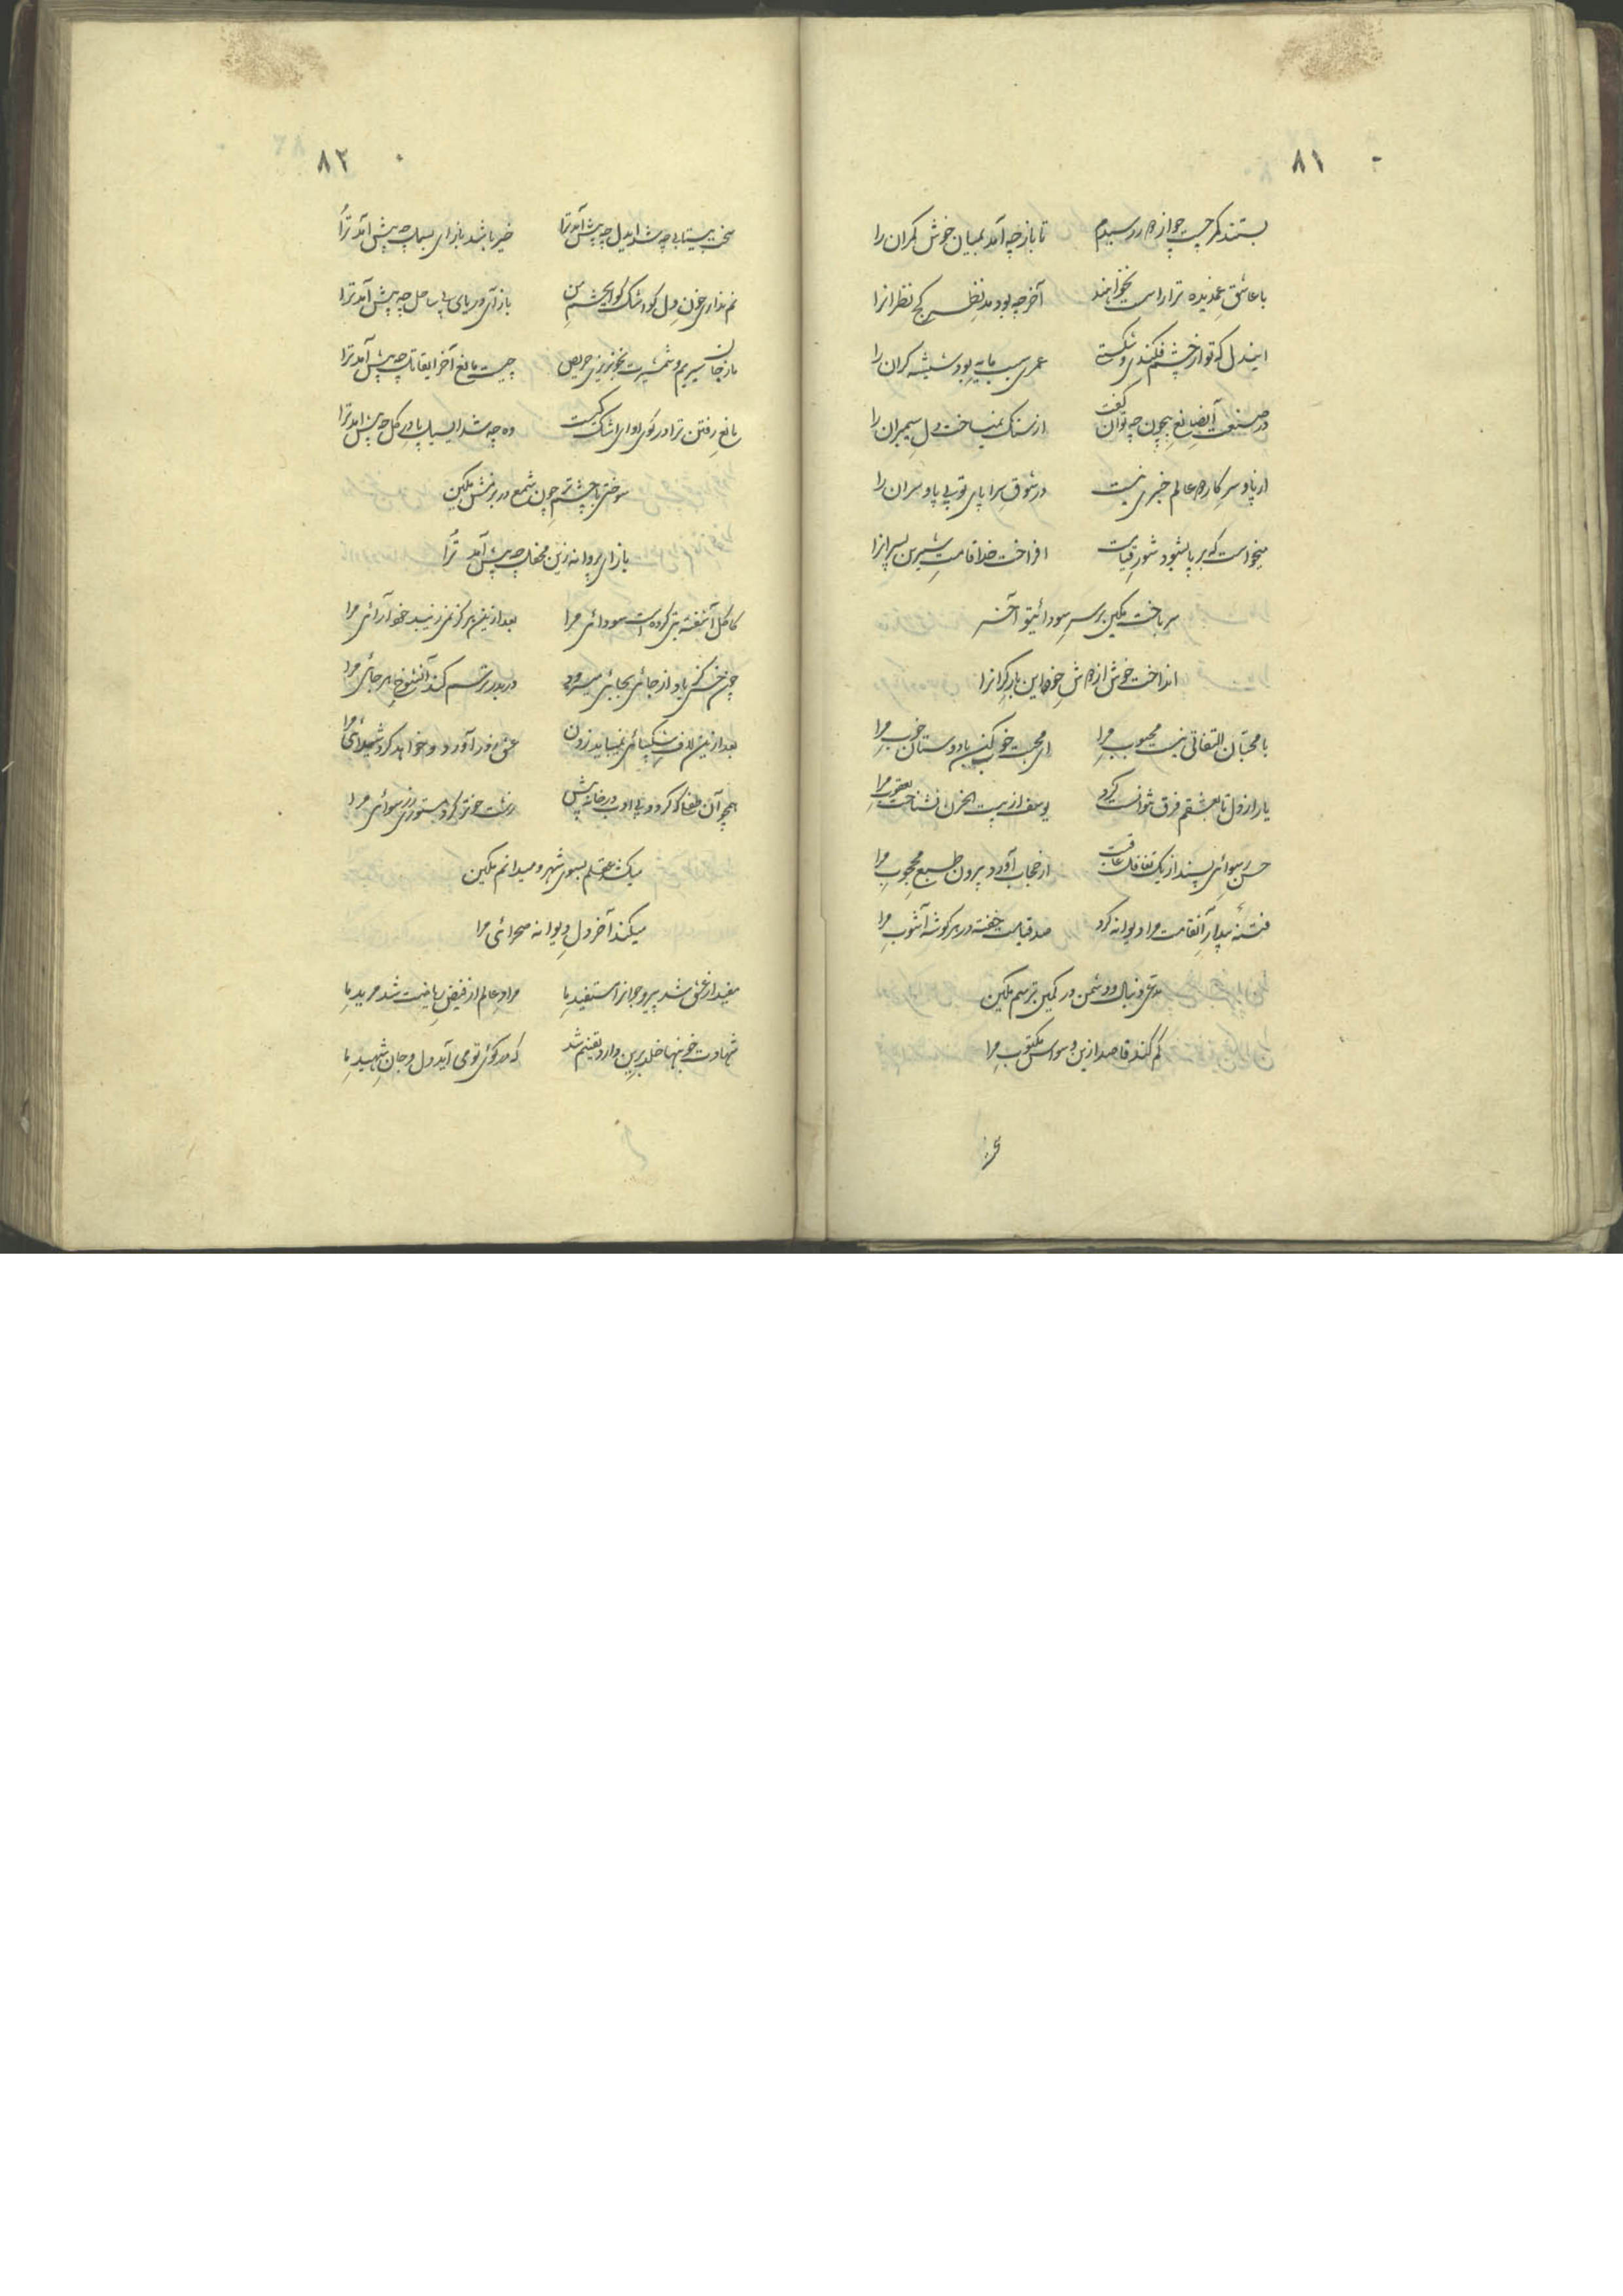 ۸۱
بستند کمر چست چو از دور رسیدم تا باز چه آمد بمیان خوش کمران را
با عاشق غمدیده ترا راست نخواهند آخر چه بود مد نظر کج نظرانرا
ایندل که تو از چشم فکندی و شکستی عمری سبب مایه بود شیشه کران را
در صنعت آنصانع بیچون چه توان گفت از سنک نمیساخت دل سیمبران را
از پا و سر کار دو عالم خبری نیست در شوق سراپای تو بی پا و سران را
میخواست که برپا بشود شور قیامت افراخت خدا قامت شیرین پسرانرا
سر باخت مکین بر سر سودای تو آخر
انداخت خوش از دوش خود این بار کرانرا
با محبتان التفاتی نیست محبوب مرا ای محبت خو مکن با دوستان خوب مرا
یار از دل تا بعشقم فرق نتوانست کرد یوسف از بیت الحزن نشناخت یعقوب مرا
حسن رسوائی پسند از یک تغافل عاقبت از حجاب آورد بیرون طبع محجوب مرا
فتنه بیدار آنقامت مرا دیوانه کرد صد قیامت خفته در هر کوشه آشوب مرا
مدعی دنبال و دشمن در کمین ترسم مکین
کم کند قاصد ازین وسواس مکتوب مرا
۸۲
سخت بیتابی چه شد ایدل چه پیش آمد ترا خیر باشد باز ای بسمل چه پیش آمد ترا
نم نداری خون دل کو اشک کو ایچشم من باز آی دریای بی ساحل چه پیش آمد ترا
ما ز جان سیریم و شمشیرت بخونریزی حریص چیست مانع آخر ایقاتل چه پیش آمد ترا
مانع رفتن ترا در کوی او ای اشک کیست وه چه شد ای سیل پا در کل چه پیش آمد ترا
سوختی با چشم تر چون شمع در بزمش مکین
باز ای پروانه زین محفل چه پیش آمد ترا
کاکل آشفته بتی کرده است سودائی مرا بعد ازین هرکز نمی زیبد خود آرائی مرا
چون خس کز باد از جائی بجائی میرود در بدر ترسم کند آنشوخ هر جائی مرا
بعد ازین لاف شکیبائی نمیباید زدن عشق زور آورد و خواهد کرد شیدائی مرا
همچو آن طفلی که کردد بی ادب در خانه پیش
میکشد عقلم بسوی شهر و میدانم مکین
میکند آخر دل دیوانه صحرائی مرا
مفید از عشق شد پیر و جوانرا مستفید ما مراد عالم از فیض ریاضت شد مرید ما
شهادت خونبها خلد برین دارد یقینم شد که در کوی تو می آید دل و جان شهید ما